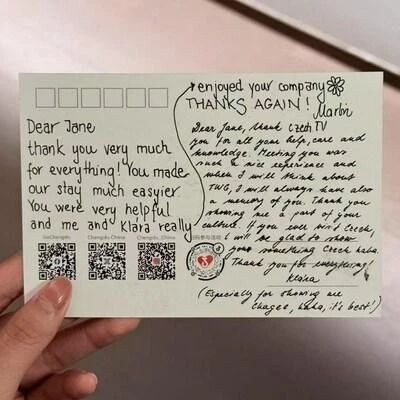 Dear Jane
thank you very much
for everything! You made
our stay much easier.
You were very helpful
and me and Klára really
enjoyed your company
THANKS AGAIN!
Martin
Dear Jane, thank
Czech TV
you for all your help, care and
knowledge. Meeting you was
such a nice experience and
when I will think about
TWG, I will always have also
a memory of you. Thank you
showing me a part of your
culture. If you ever visit Czech,
I will be glad to show
you something Czech haha.
Thank you for everything!
Klára
(Especially for showing me
Chagee, haha, it's best!)
GoChengdu
Chengdu, China
Chengdu, China